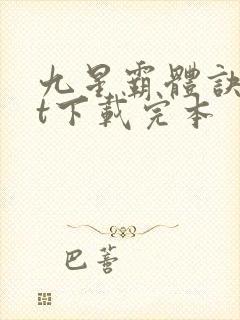 九星霸體訣
t下載完本
巴蒼